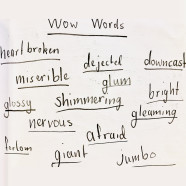 Wow Words
heart broken
dejected
downcast
miserible
glum
bright
glossy
shimmering
gleaming
nervous
afraid
forlorn
giant
jumbo